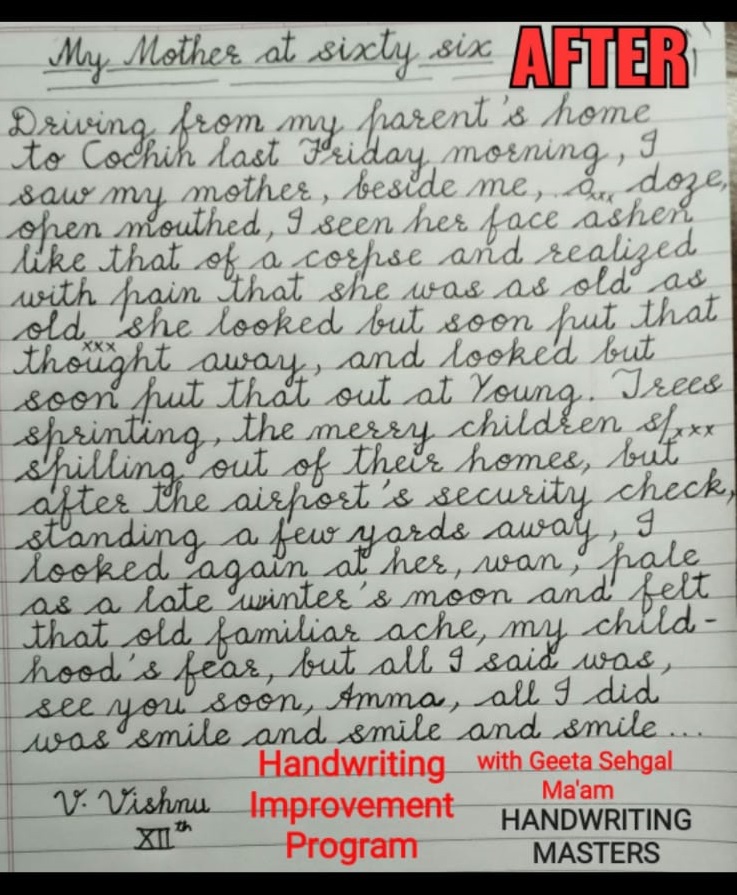 My Mother at sixty six
AFTER
Driving from my parent's home
to Cochin last Friday morning, I
saw my mother, beside me, doze,
open mouthed, I seen her face ashen
like that of a corpse and realized
with pain that she was as old as
old she looked but soon put that
xxx
thought away, and looked but
soon put that out at Young. Trees
sprinting, the merry children sp xxx
spilling out of their homes, but
after the airport's security check,
standing a few yards away, I
looked again at her, wan, pale
as a late winter's moon and felt
that old familiar ache, my child-
hood's fear, but all I said was,
see you soon, Amma, all I did
was smile and smile and smile...
V. Vishnu
XIIth
Handwriting
Improvement
Program
with Geeta Sehgal
Ma'am
HANDWRITING
MASTERS